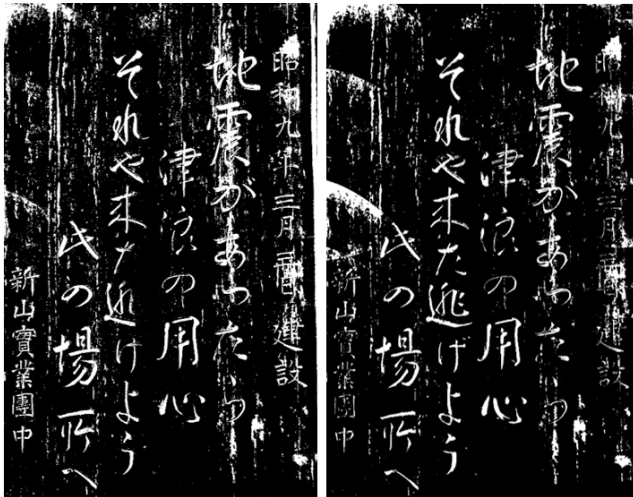 昭和九年三月三日建設
地震があつたら
津浪の用心
それや来た逃げよう
此の場所へ
新山實業團中
昭和九年三月三日建設
地震があつたら
津浪の用心
それや来た逃げよう
此の場所へ
新山實業團中